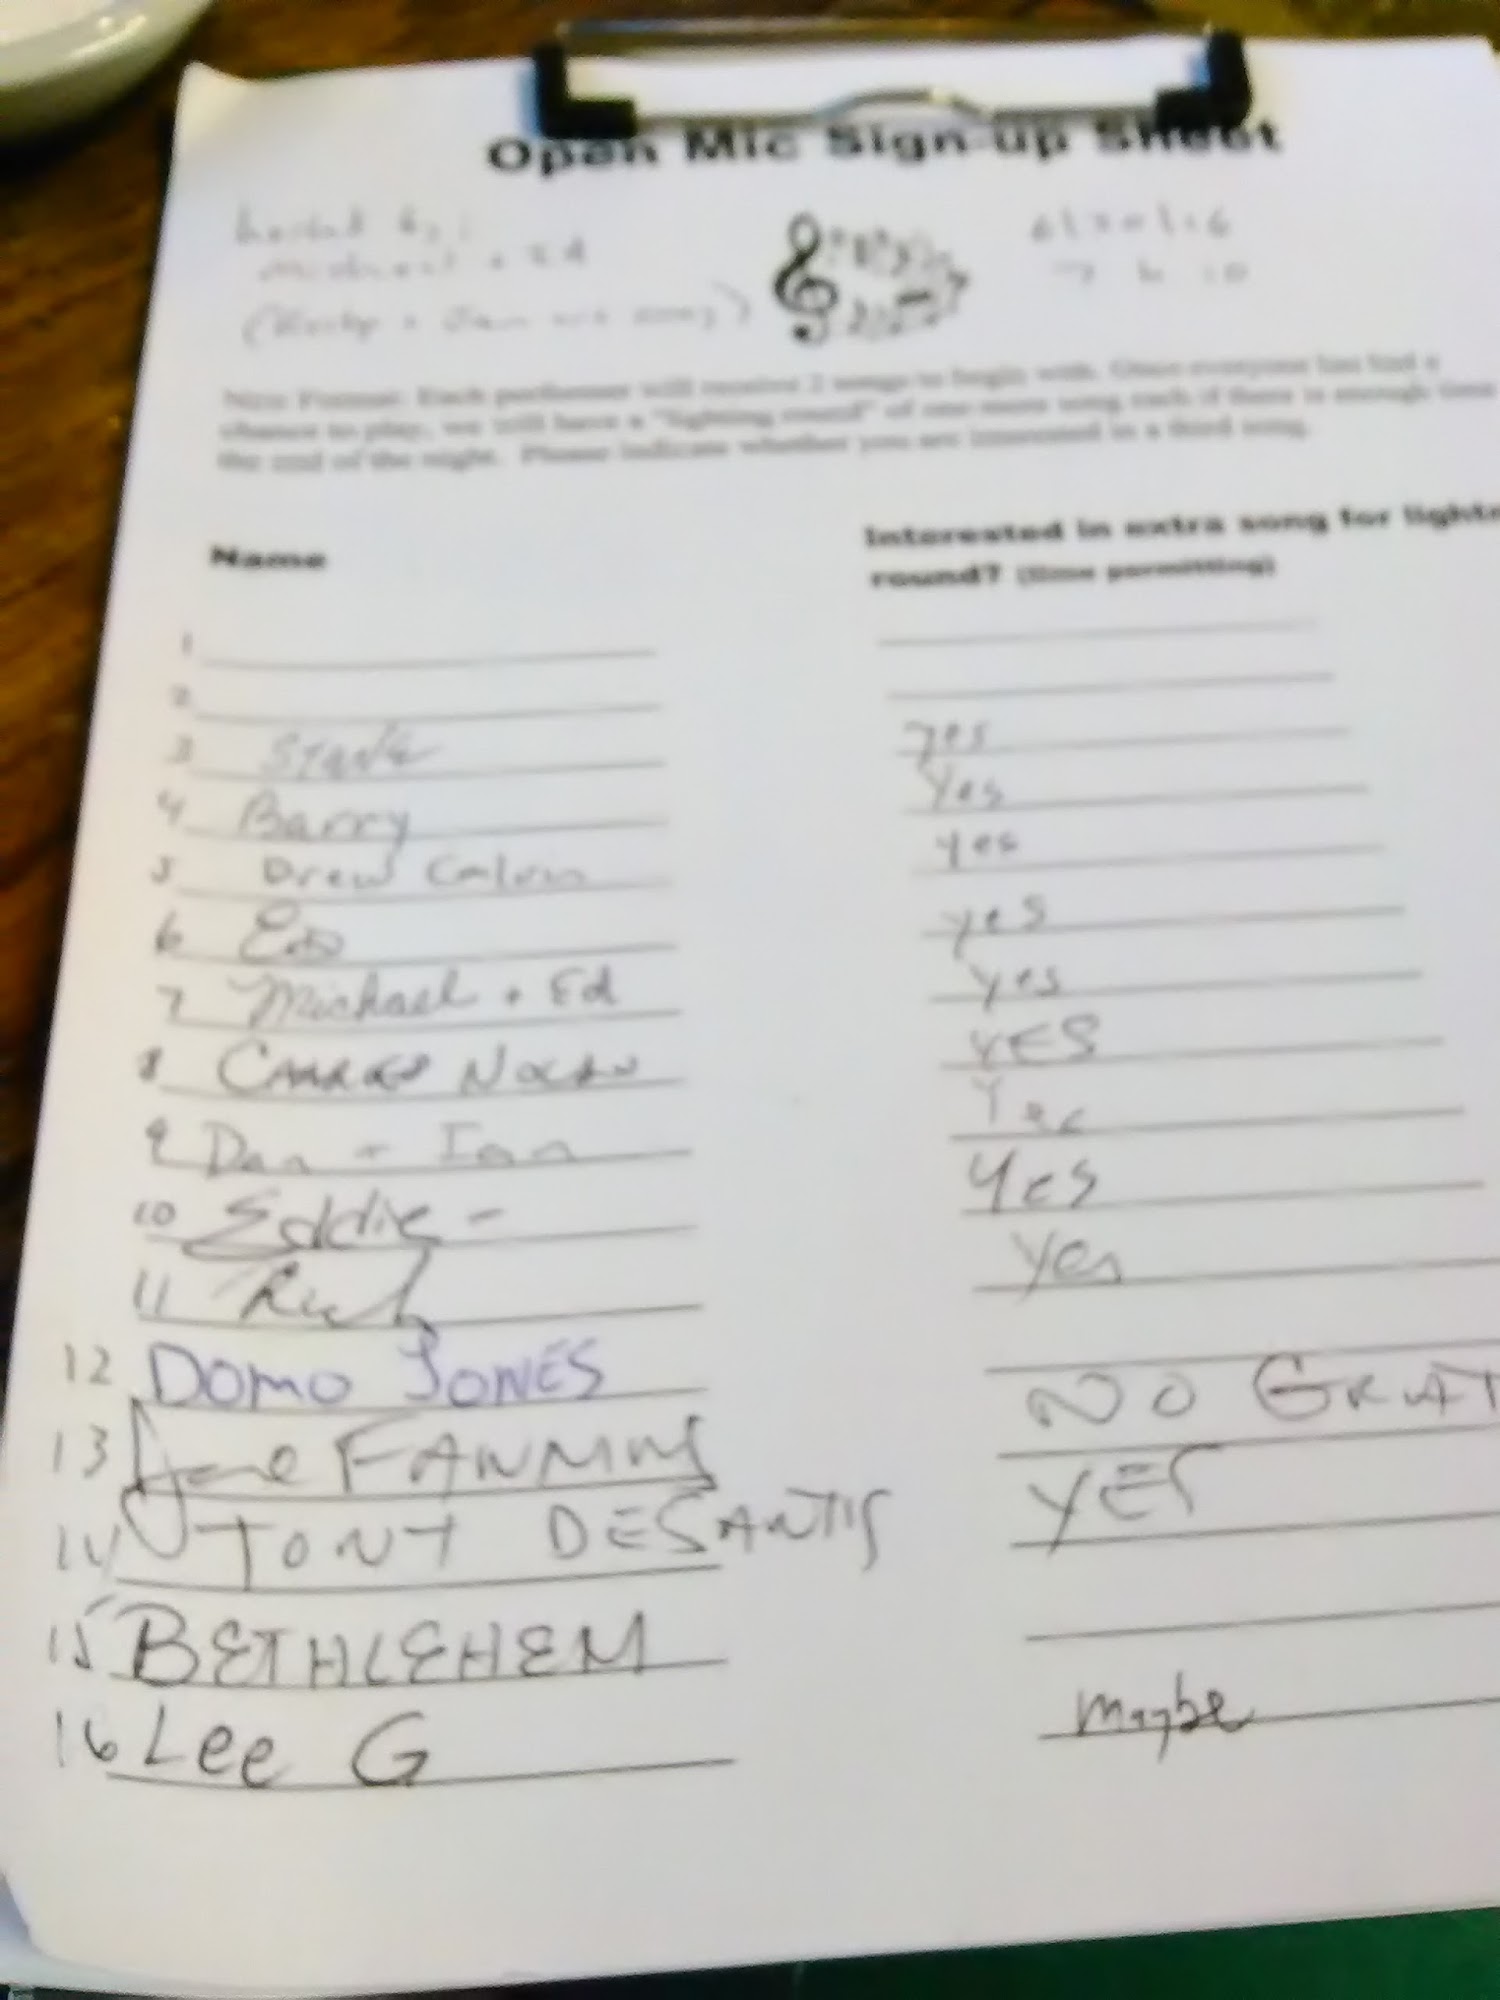 Open Mic Sign-up Sheet
hosted by:
Michael + Ed
7 to 10
New Format: Each performer will receive 2 songs to begin with. Once everyone has had a
chance to play, we will have a "lighting round" of one more song each if there is enough time
the end of the night. Please indicate whether you are interested in a third song.
Name
Interested in extra song for lightn
round? (time permitting)
1
2
3 yes
4 Barry Yes
5 Drew Calvin yes
6 yes
7 Michael + Ed yes
8 YES
9 Dan + Ian Yes
10 Eddie - Yes
11 Rich Yes
12 DOMO JONES
13 NO
14 TONY DESANTIS YES
15 BETHLEHEM
16 Lee G maybe